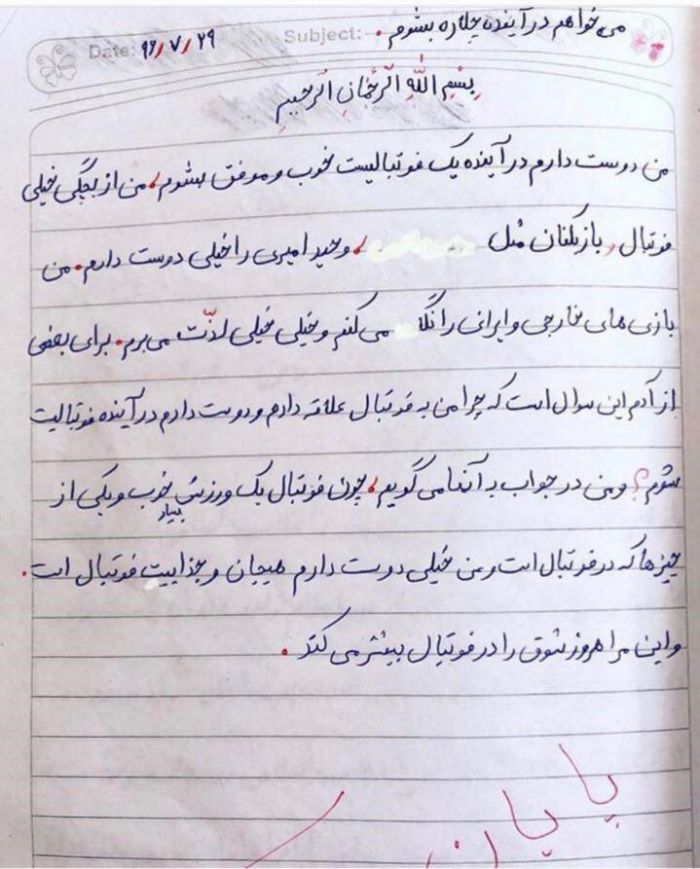 می خواهم در آینده چکاره بشوم.
Subject:
Date: ۹۶/۷/۲۹
بِسْمِ اللّهِ الرَّحْمانِ الرَّحیمِ
من دوست دارم در آینده یک فوتبالیست خوب و موفق بشوم، من از بچگی خیلی
فوتبال، بازیکنان مثل ، وحید امیری را خیلی دوست دارم. من
بازی های خارجی و ایرانی را نگاه می کنم و خیلی خیلی لذّت می برم. برای بعضی
از آدم این سوال است که چرا من به فوتبال علاقه دارم و دوست دارم در آینده فوتبالیت
بشوم؟ و من در جواب به آنها می گویم، چون فوتبال یک ورزش بسیار خوب و یکی از
چیزها که در فوتبال است و من خیلی دوست دارم هیجان و جذابیت فوتبال است.
و این مرا هر روز شوق را در فوتبال بیشتر می کند.
پایان